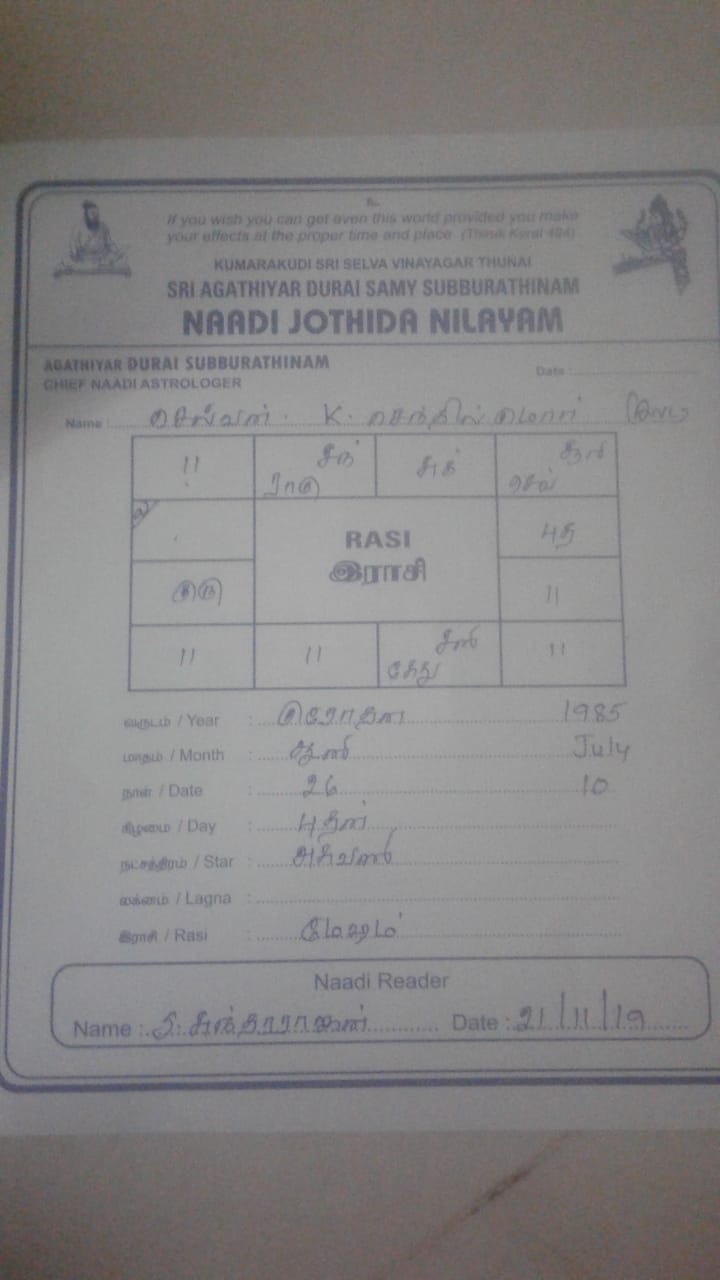 உ
If you wish you can get even this world provided you make
your effects at the proper time and place (Thiruk Kural 484)
KUMARAKUDI SRI SELVA VINAYAGAR THUNAI
SRI AGATHIYAR DURAI SAMY SUBBURATHINAM
NAADI JOTHIDA NILAYAM
AGATHIYAR DURAI SUBBURATHINAM
CHIEF NAADI ASTROLOGER
Date :
Name : செல்வன். K. செந்தில்
சந் சூரி
ராகு சுக் செவ்
ல
புத
RASI
இராசி
குரு
சனி
கேது
வருடம் / Year : குரோதன 1985
மாதம் / Month : ஆனி July
நாள் / Date : 26 10
கிழமை / Day : புதன்
நட்சத்திரம் / Star : அசுவனி
லக்னம் / Lagna :
இராசி / Rasi : மேஷம்
Naadi Reader
Name : Date : 21/11/19